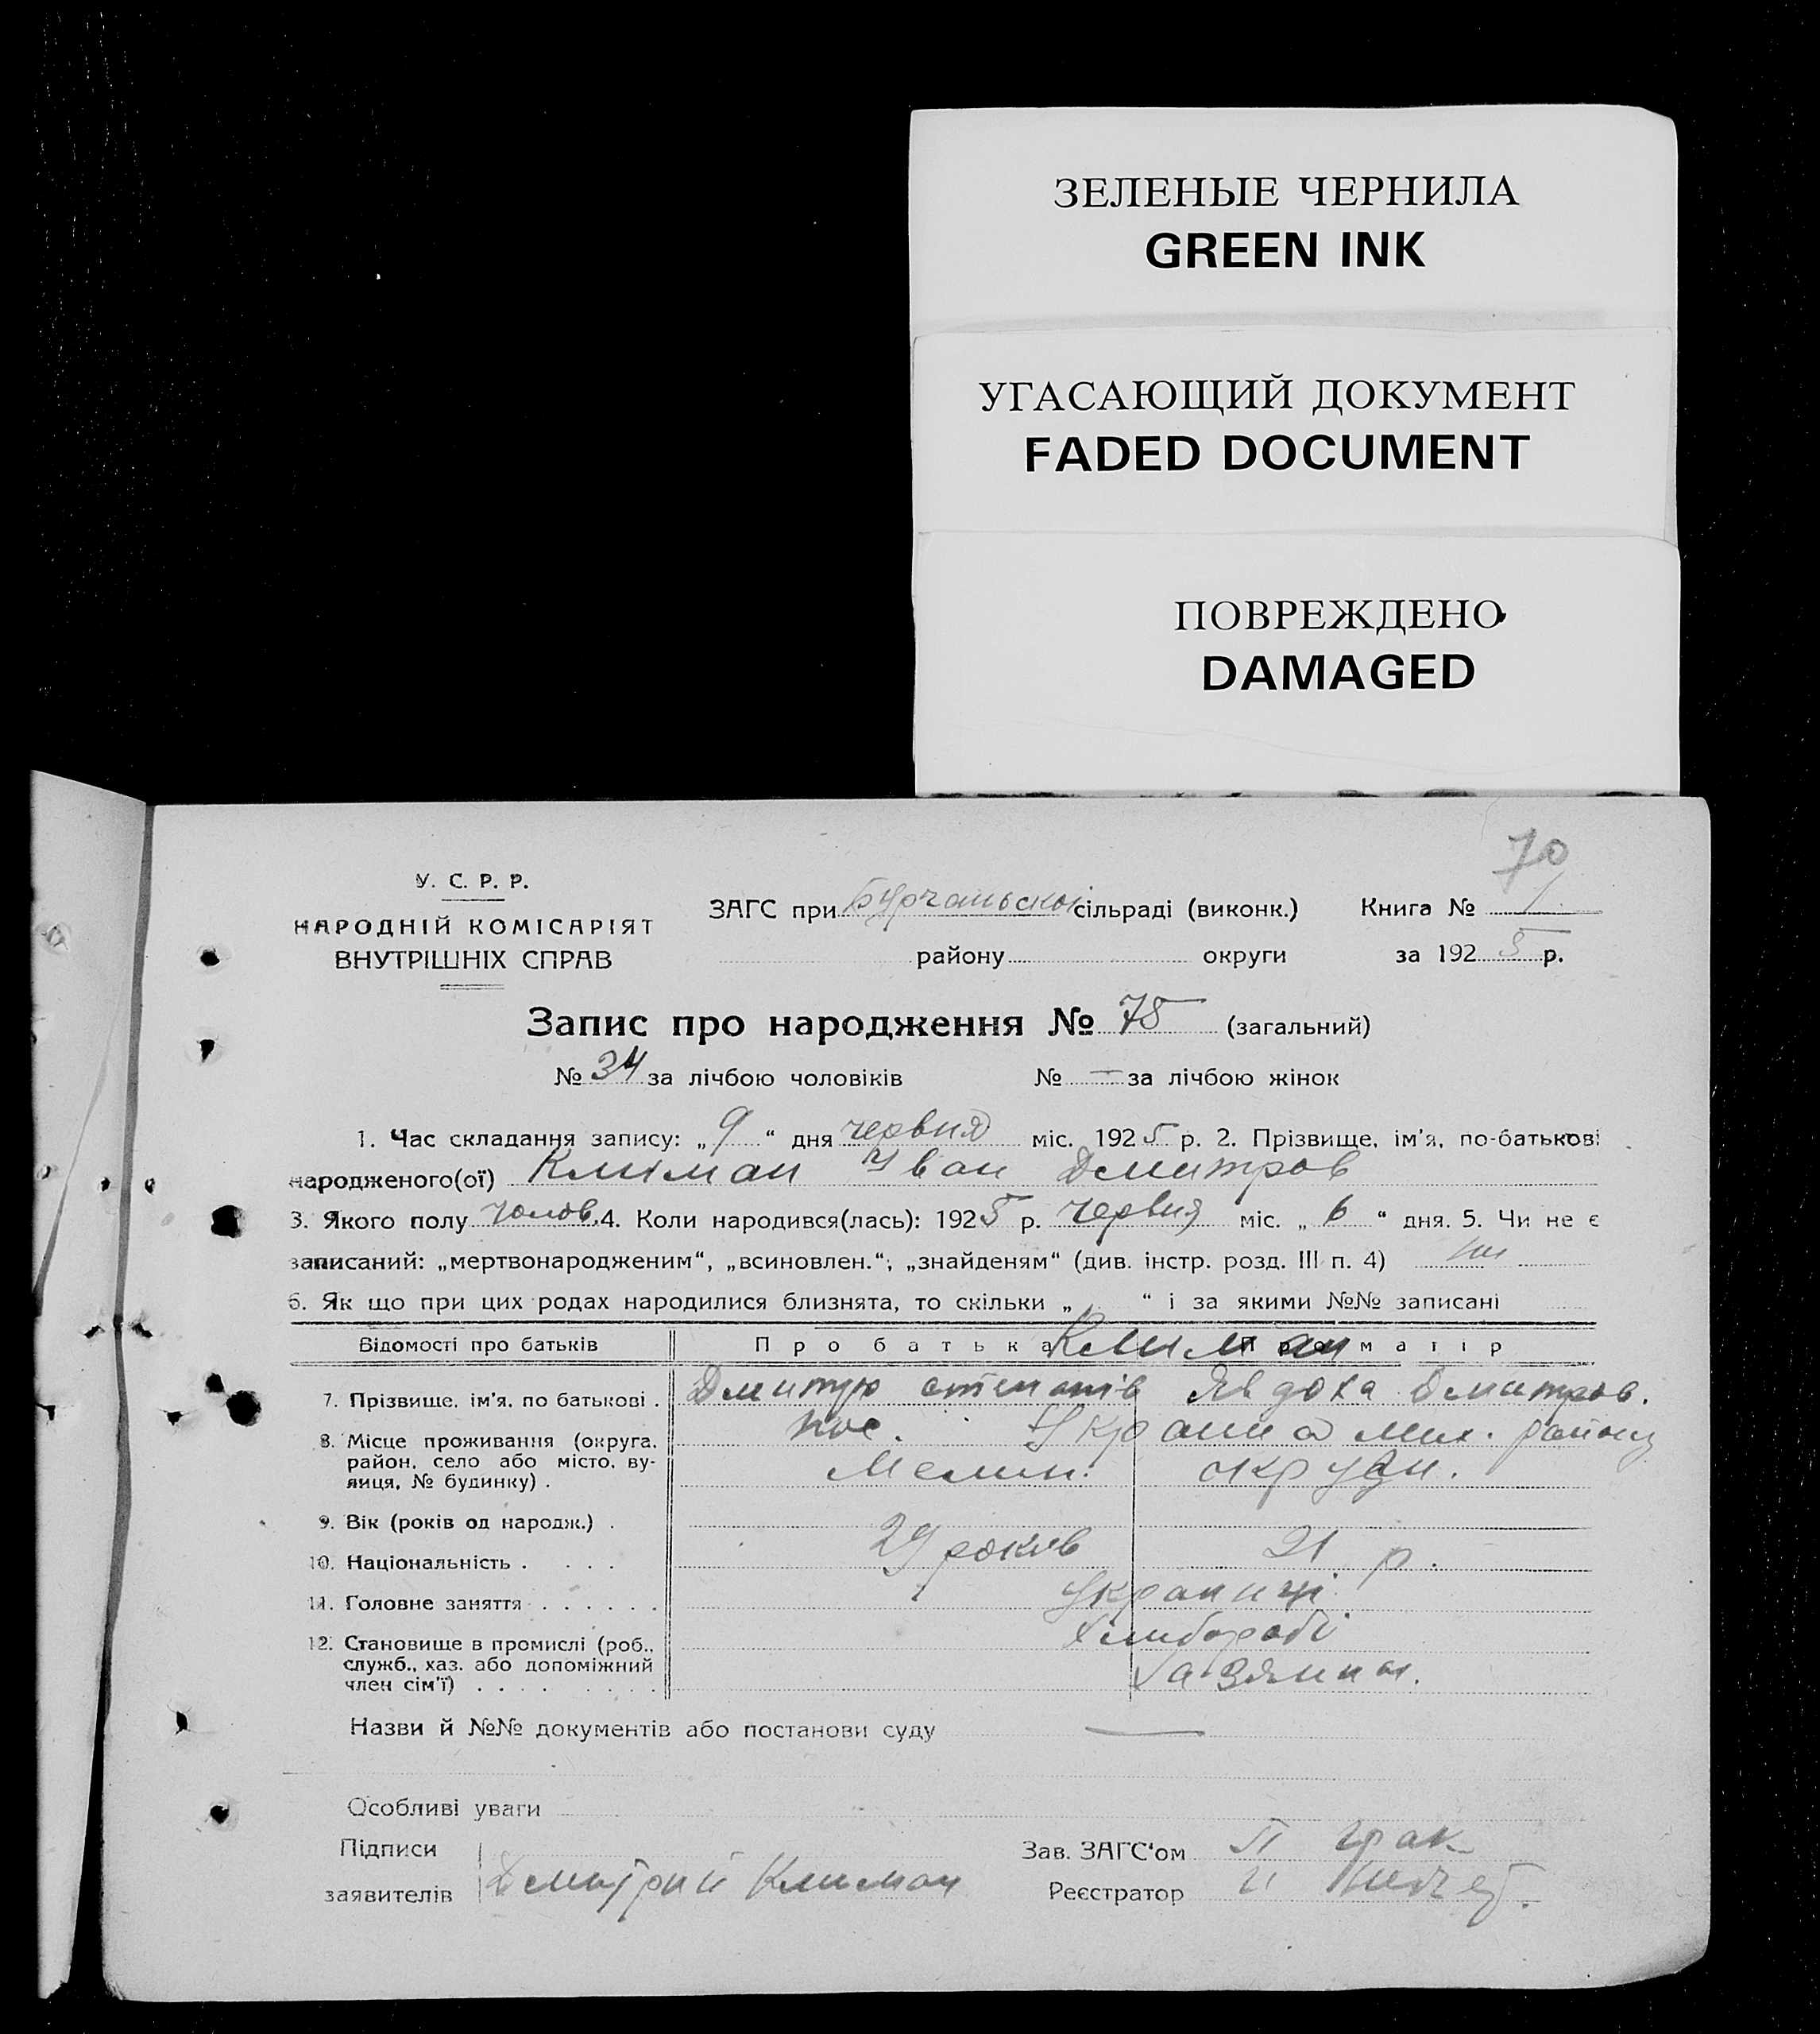 ЗЕЛЕНЫЕ ЧЕРНИЛА
GREEN INK
УГАСАЮЩИЙ ДОКУМЕНТ
FADED DOCUMENT
ПОВРЕЖДЕНО
DAMAGED
70
У. С. Р. Р.
НАРОДНІЙ КОМІСАРІЯТ
ВНУТРІШНІХ СПРАВ
ЗАГС при сільраді (виконк.) Книга № 1
району округи за 1925 р.
Запис про народження № 75 (загальний)
№ 34 за лічбою чоловіків № — за лічбою жінок
1. Час складання запису: „9“ дня червня міс. 1925 р. 2. Прізвище, ім'я, по-батькові
народженого(ої) Климан Иван Дмитров
3. Якого полу чолов. 4. Коли народився(лась): 1925 р. Червня міс. „6“ дня. 5. Чи не є
записаний: „мертвонародженим“, „всиновлен.“, „знайденям“ (див. інстр. розд. III п. 4) ни
6. Як що при цих родах народилися близнята, то скільки „ “ і за якими №№ записані
Відомості про батьків Про батька Климан Про матір
7. Прізвище, ім'я, по батькові . Дмитро степанів Явдоха Дмитров.
8. Місце проживання (округа, район, село або місто, вулиця, № будинку) . пос. Украинка Мих. району
Мелит. округи.
9. Вік (років од народж.) .
10. Національність . . . . 29 років 21 р.
11. Головне заняття . . . . . . Украинці
12. Становище в промислі (роб., служб., хаз. або допоміжний член сім'ї) . . . . Хлибороби
Назви й №№ документів або постанови суду —
Особливі уваги
Підписи заявителів Дмитрий Климан
Зав. ЗАГС'ом
Реєстратор